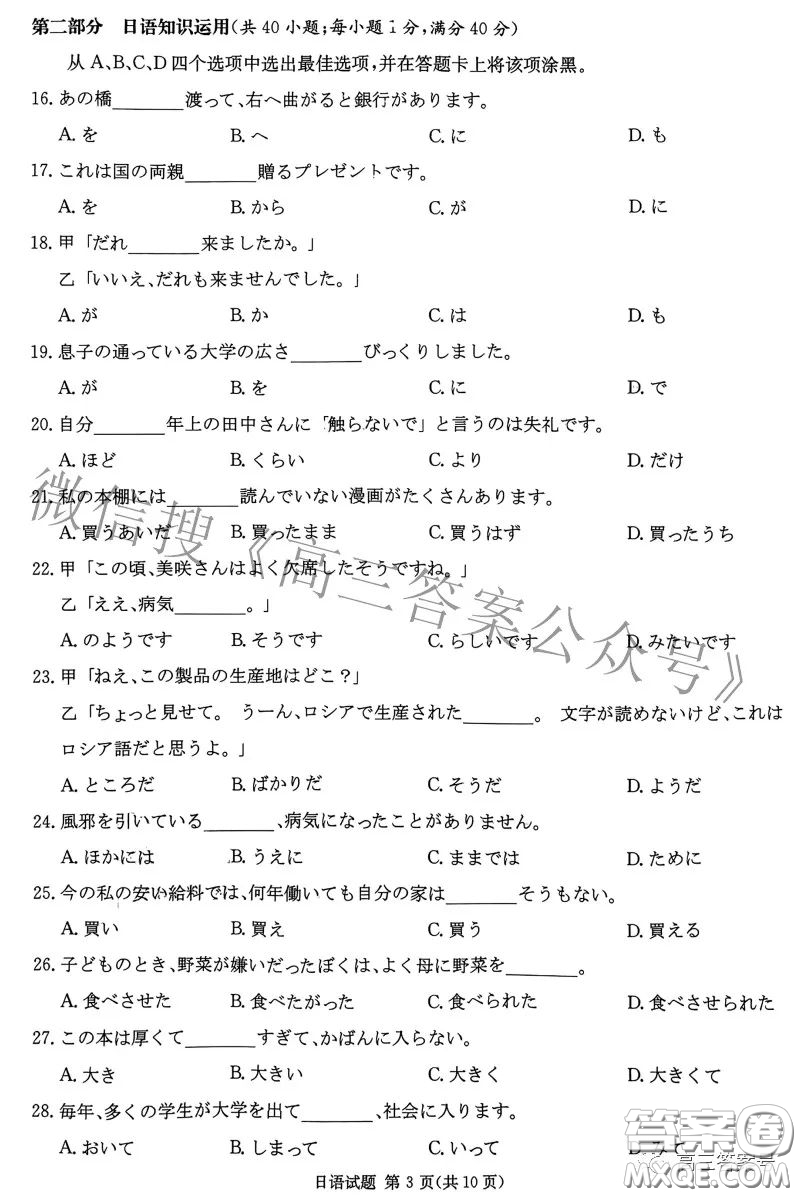 第二部分 日语知识运用(共 40 小题;每小题 1 分,满分 40 分)
从 A、B、C、D 四个选项中选出最佳选项,并在答题卡上将该项涂黑。
16. あの橋________渡って、右へ曲がると銀行があります。
A. を B. へ C. に D. も
17. これは国の両親________贈るプレゼントです。
A. を B. から C. が D. に
18. 甲「だれ________来ましたか。」
乙「いいえ、だれも来ませんでした。」
A. が B. か C. は D. も
19. 息子の通っている大学の広さ________びっくりしました。
A. が B. を C. に D. で
20. 自分________年上の田中さんに「触らないで」と言うのは失礼です。
A. ほど B. くらい C. より D. だけ
21. 私の本棚には________読んでいない漫画がたくさんあります。
A. 買うあいだ B. 買ったまま C. 買うはず D. 買ったうち
22. 甲「この頃、美咲さんはよく欠席したそうですね。」
乙「ええ、病気________。」
A. のようです B. そうです C. らしいです D. みたいです
23. 甲「ねえ、この製品の生産地はどこ?」
乙「ちょっと見せて。 うーん、ロシアで生産された________。 文字が読めないけど、これは
ロシア語だと思うよ。」
A. ところだ B. ばかりだ C. そうだ D. ようだ
24. 風邪を引いている________、病気になったことがありません。
A. ほかには B. うえに C. ままでは D. ために
25. 今の私の安い給料では、何年働いても自分の家は________そうもない。
A. 買い B. 買え C. 買う D. 買える
26. 子どものとき、野菜が嫌いだったぼくは、よく母に野菜を________。
A. 食べさせた B. 食べたがった C. 食べられた D. 食べさせられた
27. この本は厚くて________すぎて、かばんに入らない。
A. 大き B. 大きい C. 大きく D. 大きくて
28. 毎年、多くの学生が大学を出て________、社会に入ります。
A. おいて B. しまって C. いって D. みて
日语试题 第 3 页(共 10 页)
微信搜《高三答案公众号》
答案圈
高三答案号
MXQE.COM